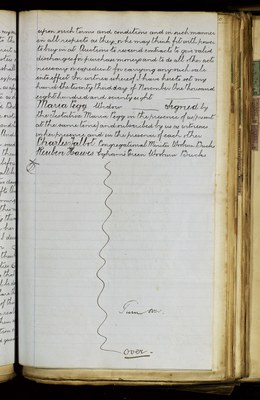 upon such terms and conditions and in such manner
in all respects as they or he may think fit with power
to buy in at Auctions to rescind contracts to give valid
discharges for purchase moneys and to do all other acts
necessary or expedient for carrying any such sale
into effect In witness whereof I have hereto set my
hand the twenty third day of November One thousand
eight hundred and seventy eight
Maria Tegg Widow Signed by
the Testatrix Maria Tegg in the presence of us present
at the same time and subscribed by us as witnesses
in her presence and in the presence of each other
Charles Talbot Congregational Minister Wooburn Bucks
Reuben Hawes Egham's Green Wooburn Bucks
Turn over
over.